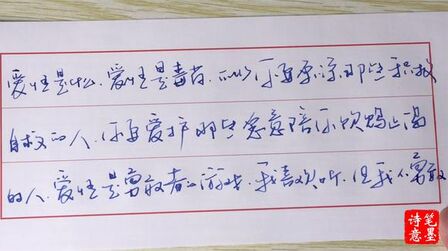 爱情是什么,爱情是毒药,所以不要原谅那些和放
自救的人,不要爱护那些愿意陪你
的人,爱情是勇敢者的游戏,我喜欢听,但我不勇敢
诗意
笔墨